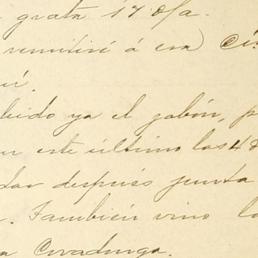 grata 17 c/a.
remitiré á esa) 
ú.
bido ya el gabán, p
este último los 48
dar después junta
. También vino l
a Covadonga.